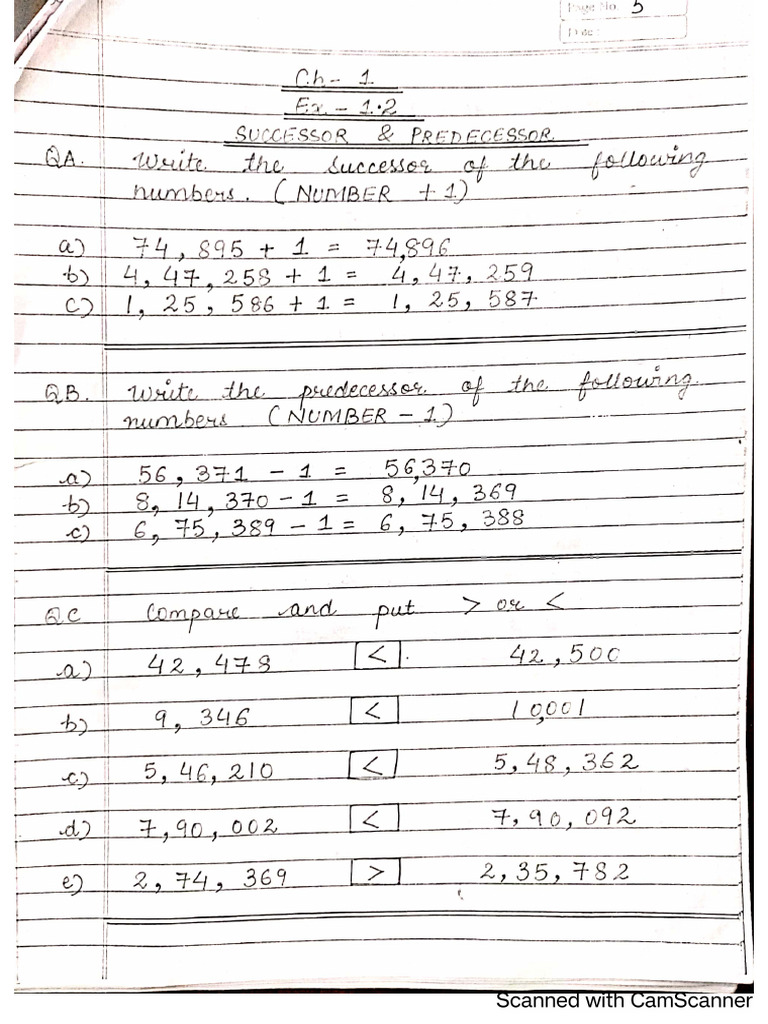 Page No. 5
Date
Ch- 1
Ex.- 1.2
SUCCESSOR & PREDECESSOR
QA. Write the successor of the following
numbers. (NUMBER + 1)
a) 74, 895 + 1 = 74,896
b) 4, 47, 258 + 1 = 4, 47, 259
c) 1, 25, 586 + 1 = 1, 25, 587
QB. Write the predecessor of the following
numbers (NUMBER - 1)
a) 56, 371 - 1 = 56,370
b) 8, 14, 370 - 1 = 8, 14, 369
c) 6, 75, 389 - 1 = 6, 75, 388
QC Compare and put > or <
a) 42, 478 < 42,500
b) 9, 346 < 10,001
c) 5, 46, 210 < 5, 48, 362
d) 7, 90, 002 < 7, 90, 092
e) 2, 74, 369 > 2, 35, 782
Scanned with CamScanner